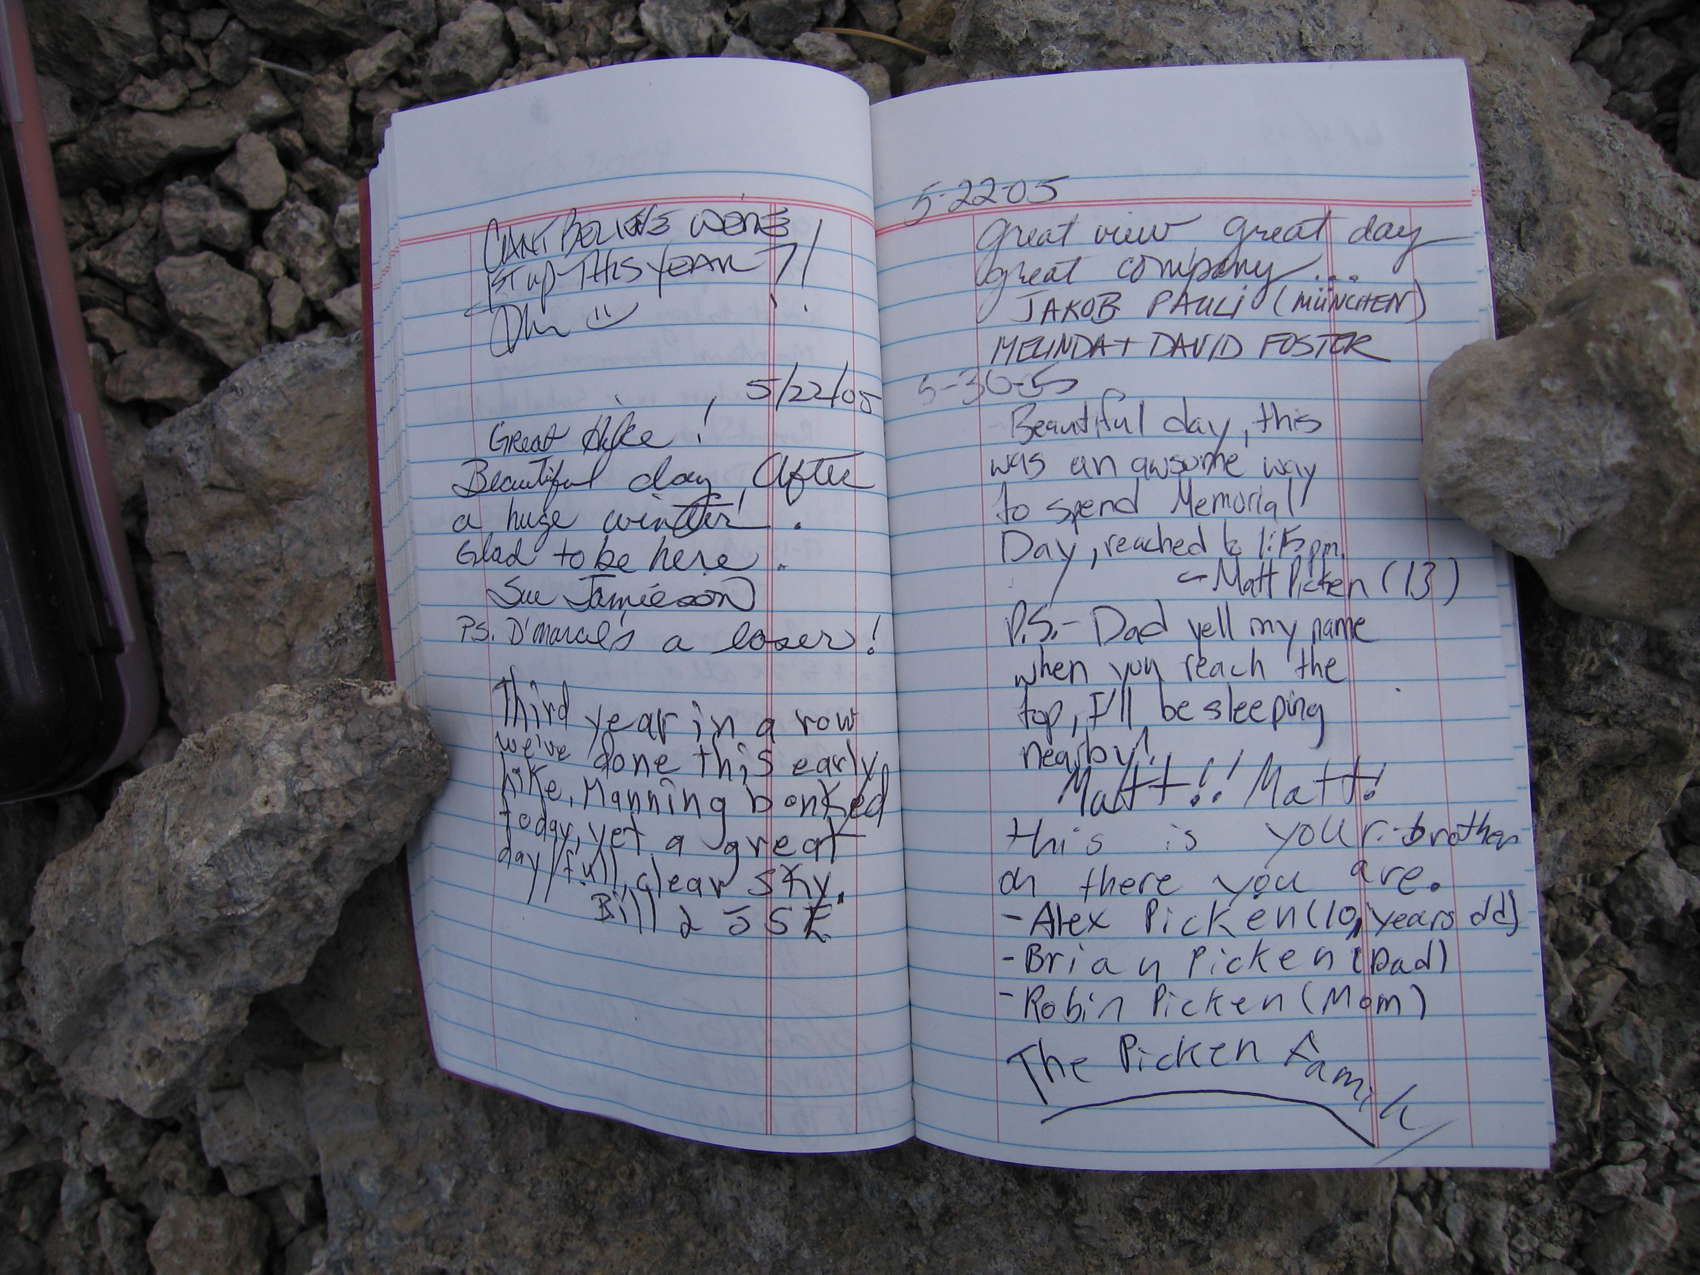 CAN'T BELIEVE WERE
1ST UP THIS YEAR ?!
5/22/05
Great Hike!
Beautiful day, After
a huge winter.
Glad to be here.
Sue Jamieson
P.S. D'marcal's a loser!
Third year in a row
we've done this early
hike, Manning bonked
today, yet a great
day/full, clear sky.
Bill
5-22-05
Great view great day
great company...
JAKOB PAULI (MÜNCHEN)
MELINDA + DAVID FOSTER
5-30-5
Beautiful day, this
was an awsome way
to spend Memorial
Day, reached 1:15 pm.
- Matt Picken (13)
P.S.- Dad yell my name
when you reach the
top, I'll be sleeping
nearby!
Matt!! Matt!
this is your brother
oh there you are.
- Alex Picken (10, years old)
- Brian Picken (Dad)
- Robin Picken (Mom)
The Picken Family